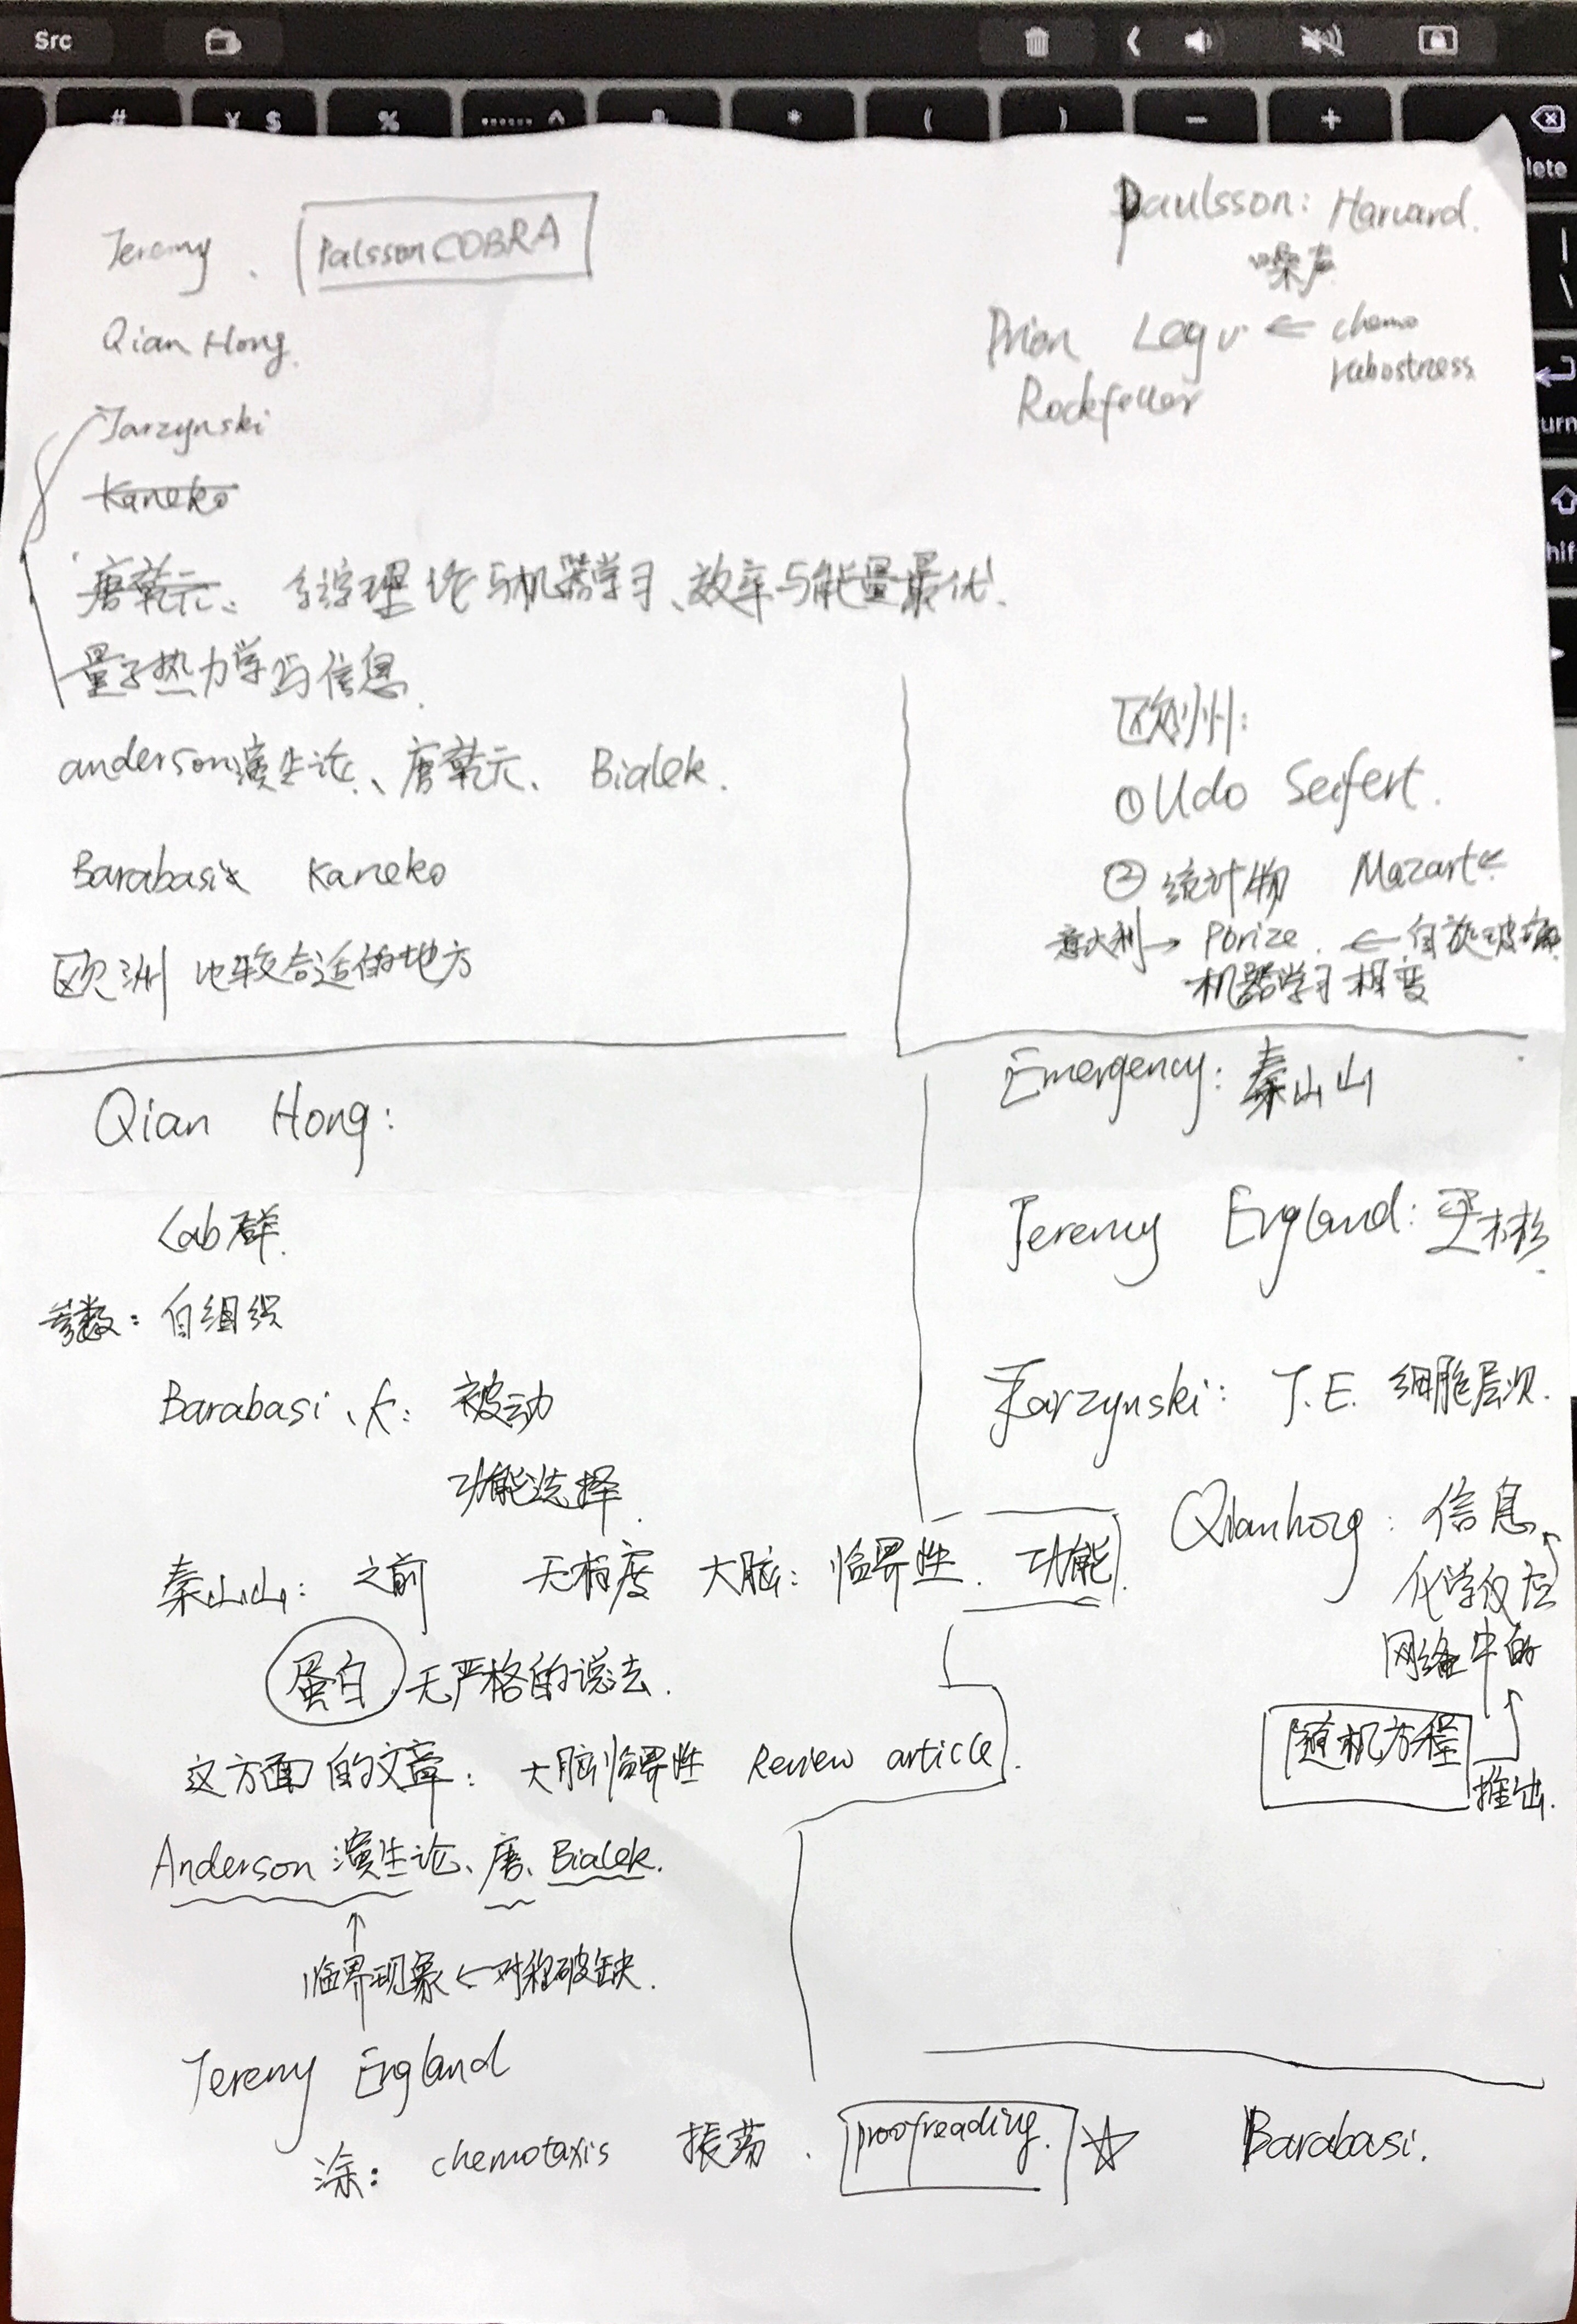 Src
# ¥ $ % …… ^ & * ( ) — - +
lete
urn
hif
Jeremy. Palsson COBRA
Qian Hong.
Jarzynski
Kaneko
唐乾元、 理论与机器学习、效率与能量最优.
量子热力学与信息.
anderson演生论、唐乾元、 Bialek.
Barabasi Kaneko
欧洲 比较合适的地方
Paulsson: Harvard.
噪声
← chemo
robostness
Rockfeller
欧洲:
① Udo Seifert.
② 统计物 Mazart
意大利→ Porize. ← 自旋玻璃
机器学习相变
Qian Hong:
Lab群.
参数: 自组织
Barabasi、 被动
功能选择.
秦山山: 之前 无标度 大脑: 临界性. 功能.
蛋白 无严格的说法.
这方面的文章: 大脑临界性 Review article.
Anderson 演生论、唐、Bialek.
↑
临界现象 ← 对称破缺.
Jeremy England
涂: chemotaxis 振荡. proofreading. ☆ Barabasi.
Emergency: 秦山山
Jeremy England:
Jarzynski: J.E. 细胞层次.
Qianhong: 信息
化学反应
网络中的
随机方程
推出.